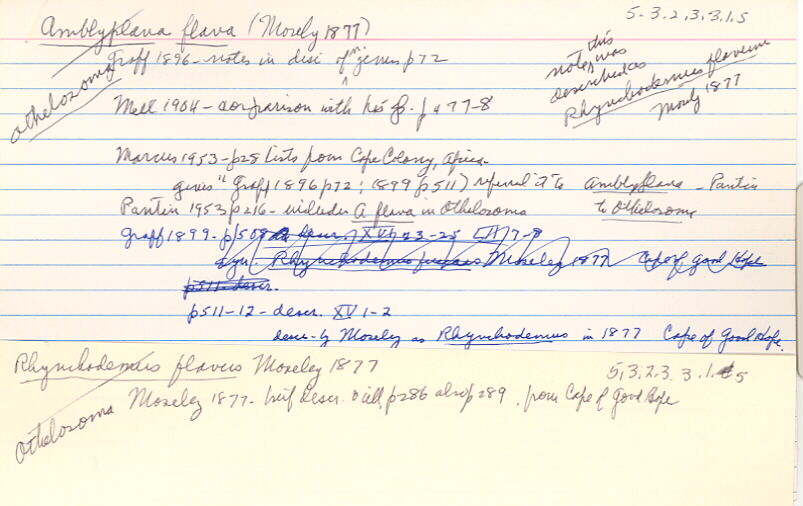 5.3.2.3.3.1.5
Amblyplana flava (Mosely 1877)
Graff 1896 - notes in disc of genus p72
this
note was
described as
Rhynchodemus flavum
Mosly 1877
Othelosoma
Mell 1904 - comparison with his sp. p 477-8
Marcus 1953 - p28 lists from Cape Colony, Africa -
gives "Graff 1896 p72; (1899 p511) referred it to Amblyplana - Pantin
to Othelosoma
Pantin 1953 p216 - includes A flava in Othelosoma
Graff 1899 - p508 descr. XVI 23-25 7-8
syn. Rhynchodemus Moseley 1877 Cape of Good Hope
p511 descr.
p511-12 - descr. XV 1-2
desc-by Moseley as Rhynchodemus in 1877 Cape of Good Hope.
Rhynchodemus flavus Moseley 1877
5.3.2.3.3.1.5
Othelosoma
Moseley 1877 - brief descr. o ill, p286 also p289, from Cape of Good Hope